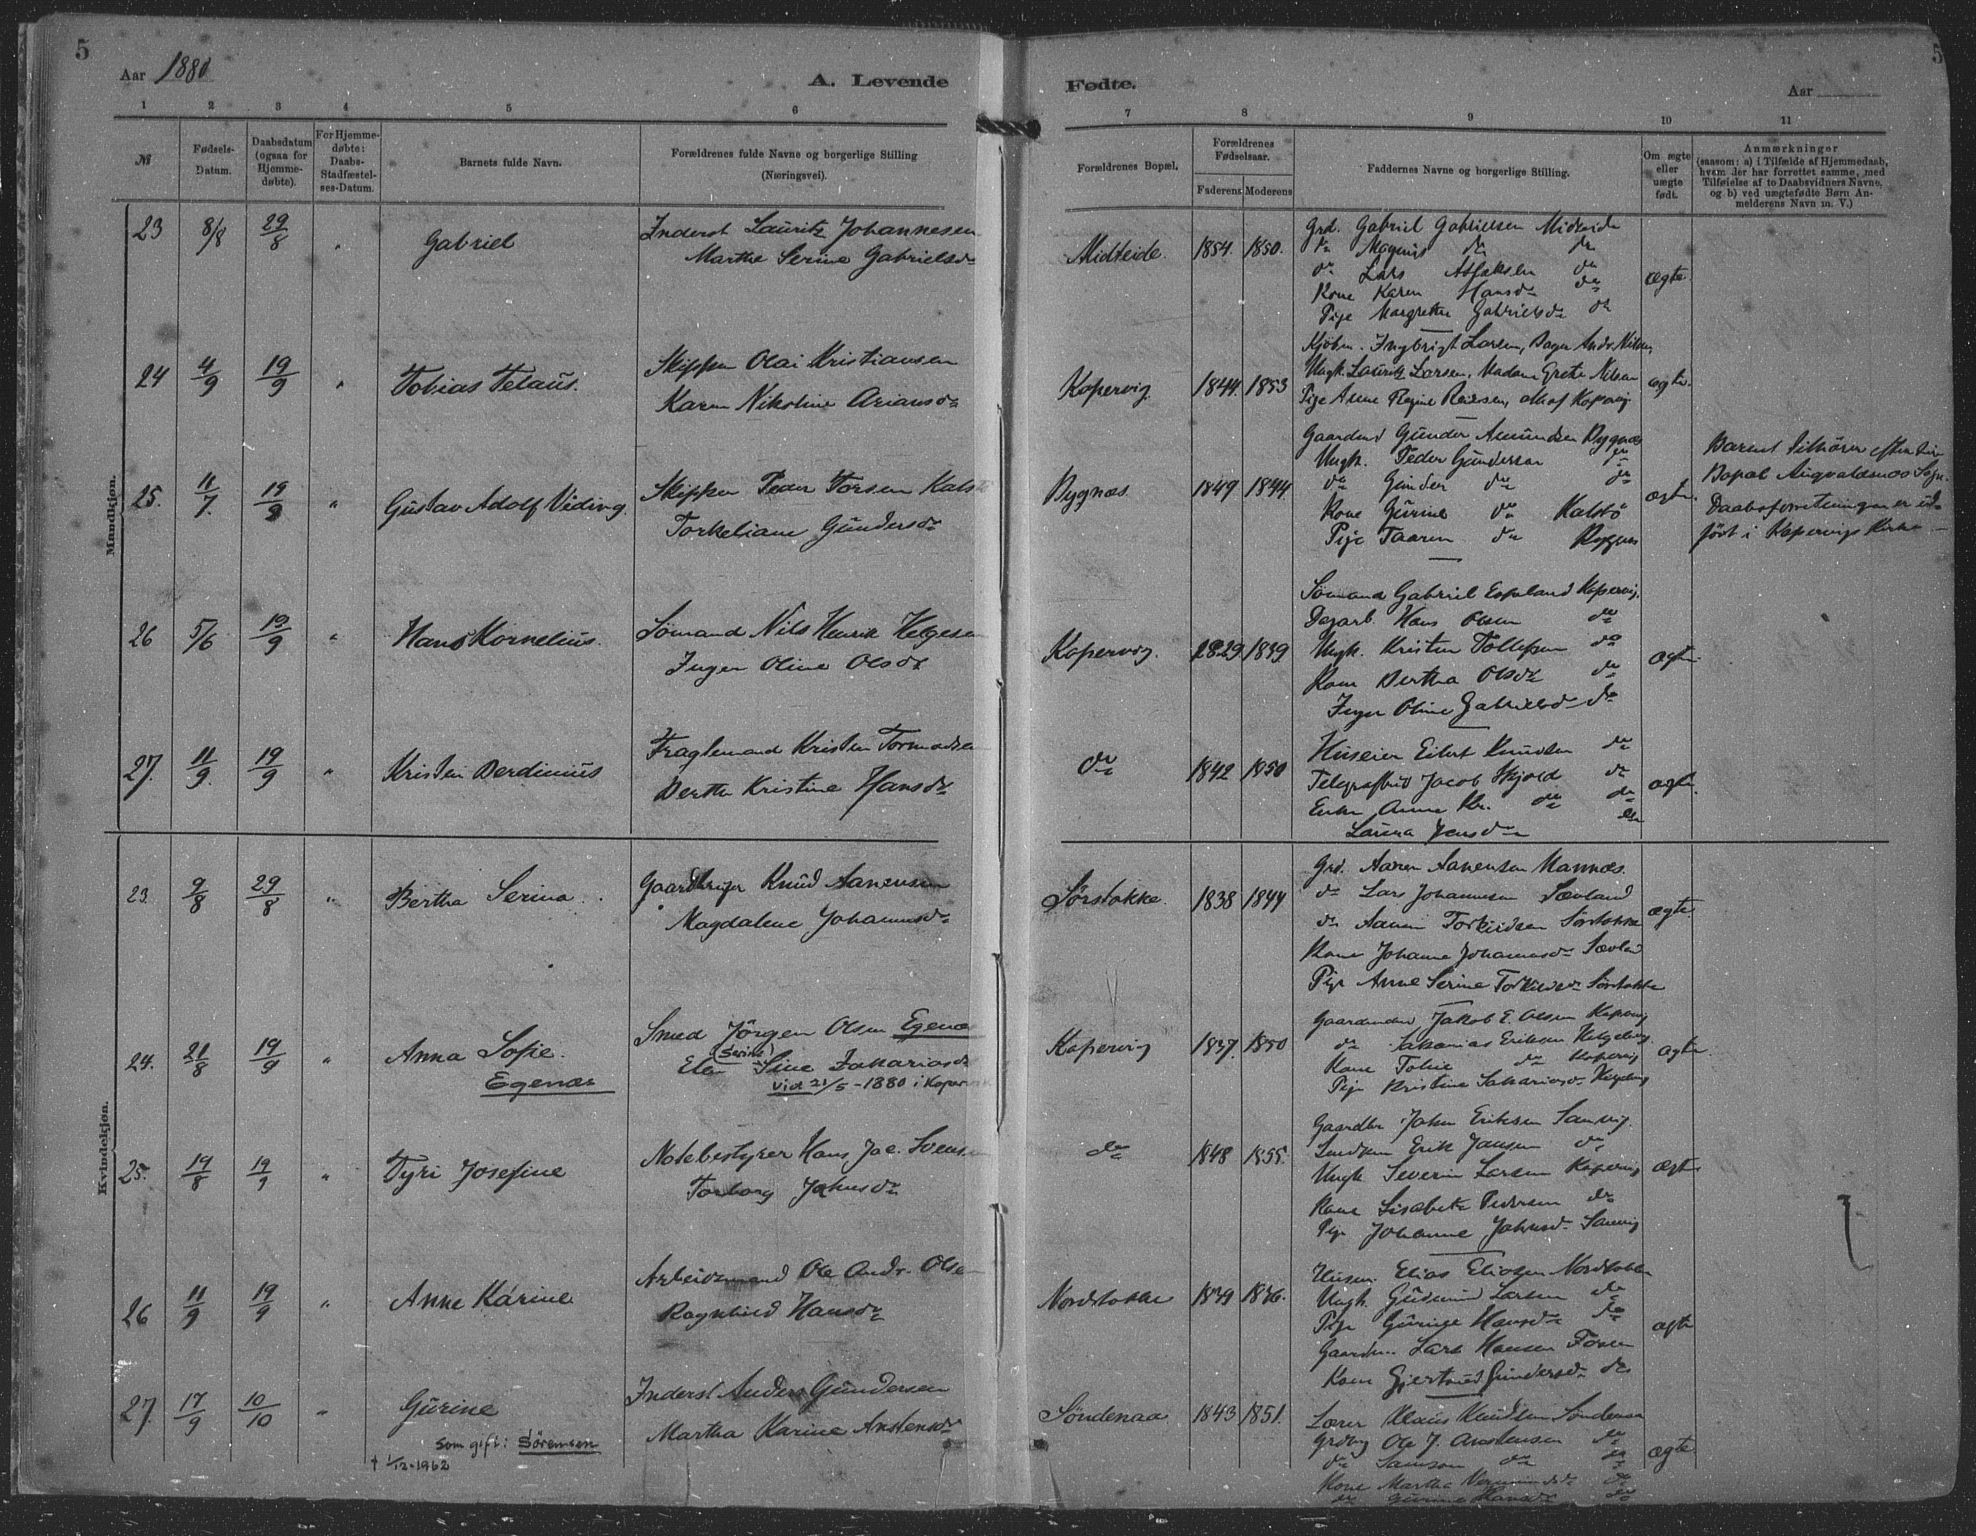 5
Aar 1880
A. Levende
1 2 3 4 5 6
№
Fødsels-Datum.
Daabsdatum (ogsaa for Hjemme-døbte).
For Hjemme-døbte: Daabs-Stadfæstel-ses-Datum.
Barnets fulde Navn.
Forældrenes fulde Navne og borgerlige Stilling
(Næringsvei).
Mandkjøn.
23 8/8 29/8 " Gabriel Inderst Lauritz Johannesen
Martha Serine Gabrielsdr
24 4/9 19/9 " Tobias Telaus. Skipper Olai Kristiansen
Karen Nikoline Ariansdr
25. 11/7. 19/9 " Gustav Adolf Viding. Skipper Peder Torsen Kalstö
Torkeliane Gundersdr
26 5/6 19/9 " Hans Kornelius. Sömand Nils Henrik Helgesen
Inger Oline Olsdr
27. 11/9. 19/9 " Kristen Berdinius Fragtemand Kristen Tormodsen
Berthe Kristine Hansdr
Kvindekjøn.
23. 9/8 29/8 " Bertha Serina. Gaardbruger Knud Aanensen
Magdalene Johannesdr
24. 21/8 19/9 " Anna Sofie. Smed Jörgen Olsen Egenæs
Egenæs
(Serine)
Elen Sine Zakariasdr
Vid 21/5-1880 i Kopervik
25. 19/8 19/9 " Tyri Josefine Notebestyrer Hans Jac. Svensen
Torborg Jahnsdr
26 11/9 19/9 " Anne Karine Arbeidsmand Ole Andr. Olsen
Ragnhild Hansdr
27. 17/9 10/10 " Gurine Inderst Anders Gundersen
Martha Karine Anstensdr
som gift: Sørensen
† 1/12-1962
5
Fødte.
Aar
7 8 9 10 11
Forældrenes Bopæl.
Forældrenes Fødselsaar.
Faderens Moderens
Faddernes Navne og borgerlige Stilling.
Om ægte eller uægte født.
Anmærkninger
(saasom: a) i Tilfælde af Hjemmedaab,
hvem der har forrettet samme, med
Tilføielse af to Daabsvidners Navne,
og b) ved uægtefødte Børn An-
melderens Navn m. V.)
Midteide. 1854. 1850. ægte.
Grd. Gabriel Gabrielsen Midteide
do Magnus do do
do Lars Aslaksen do
Kone Karen Hansdr do
Pige Margrethe Gabrielsdr do
Kopervig 1844. 1853 ægte.
Kjöbm. Ingbrigt Larsen, Bager Andr. Nilsen,
Ungk. Lauritz Larsen, Madam Grete Nilsen
Pige Anne Regine Reiersen, alle af Kopervig
Bygnæs. 1849 1844. ægte.
Gaardmd Gunder Amundsen Bygnæs
Ungk. Peder Gundersen do
do Gunder do do
Kone Gurine do Kalstö
Pige Taaren do Bygnæs
Barnet tilhörer efter sin
Bopæl Augvaldsnæs Sogn.
Daabsforretningen er ud-
fört i Kopervigs Kirke.
Kopervig. 1829 1839 ægte.
Sömand Gabriel Espeland Kopervig.
Dagarb. Hans Olsen do
Ungk. Kristen Tollefsen do
Kone Bertha Olsdr do
Inger Oline Gabrielsdr do
do 1842 1850 ægte.
Huseier Eilert Knudsen do
Telegrafbud Jacob Skjold do
Enke Anne Kr. do do
Laura Jensdr do
Sörstokke. 1838 1844 ægte
Grd. Aanen Aanensen Mannæs.
do Lars Johannesen Sævland
do Aanen Torkildsen Sörstokke
Kone Johanne Johannesdr Sævland
Pige Anne Serine Torkildsdr Sörstokke
Kopervig 1837. 1850 ægte.
Gaardmand Jakob E. Olsen Kopervig
do Sakarias Eriksen Helgeland
Kone Tobie do Kopervig
Pige Kristine Sakariasdr
do 1848 1855. ægte
Gaardbr. Jahn Eriksen Sanvig.
Erik Jansen do
Ungk. Severin Larsen Kopervig
Kone Lisabeth Pedersen do
Pige Johanne Jahnsdr Sanvig
Nordstokke 1849 1846. ægte
Husm. Elias Eliasen Nordstokke
Ungk. Gudmund Larsen do
Pige Gurine Hansdr do
Gaardm. Lars Hansen
Kone Gjertrud Gundersdr do
Söndenaa 1843 1851. ægte
Lærer Klaus Knudsen Söndenaa
Grdbrg Ole J. Anstensen do
do Samson do do
Kone Martha do
do Gurine Hansdr do